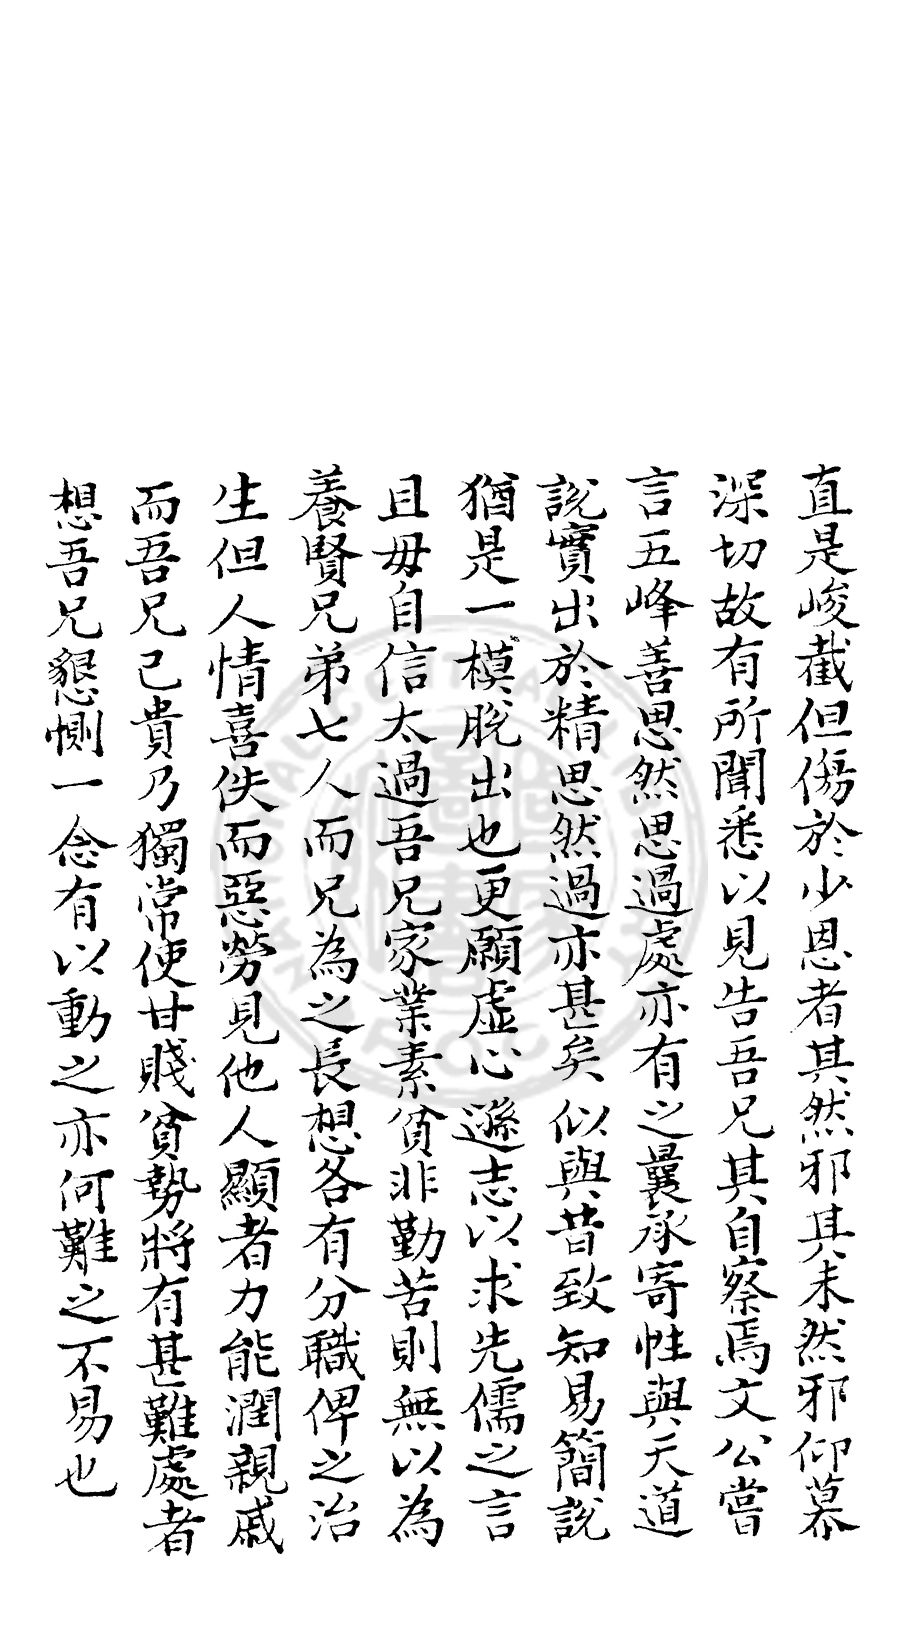 直是峻截但傷於少恩者其然邪其未然邪仰慕
深切故有所聞悉以見告吾兄其自察焉文公嘗
言五峰善思然思過處亦有之曩承寄性與天道
說實出於精思然過亦甚矣似與昔致知易簡說
猶是一模脫出也更願虛心遜志以求先儒之言
且毋自信太過吾兄家業素貧非勤苦則無以為
養賢兄弟七人而兄為之長想各有分職俾之治
生但人情喜佚而惡勞見他人顯者力能潤親戚
而吾兄已貴乃獨常使甘賤貧勢將有甚難處者
想吾兄懇惻一念有以動之亦何難之不易也